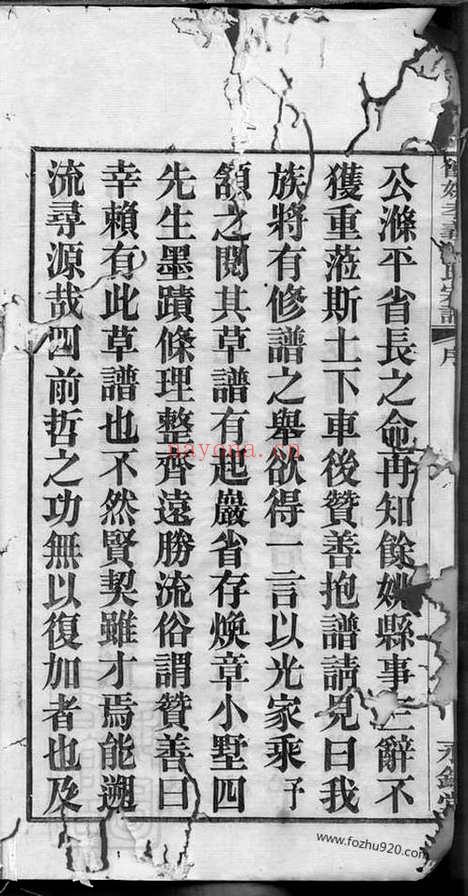 公滌平省長之命再知餘姚縣事三辭不
獲重蒞斯土下車後贊善抱譜請見曰我
族將有修譜之舉欲得一言以光家乘予
頷之閱其草譜有起巖省存煥章小墅四
先生墨蹟條理整齊遠勝流俗謂贊善曰
幸賴有此草譜也不然賢契雖才焉能遡
流尋源哉四前哲之功無以復加者也及
nayona.cn
www.fozhu920.com